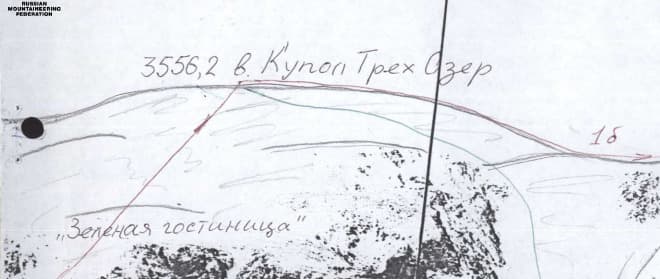 RUSSIAN
MOUNTAINEERING
FEDERATION
3556,2 в. Купол Трех Озер
1б
„Зеленая гостиница"